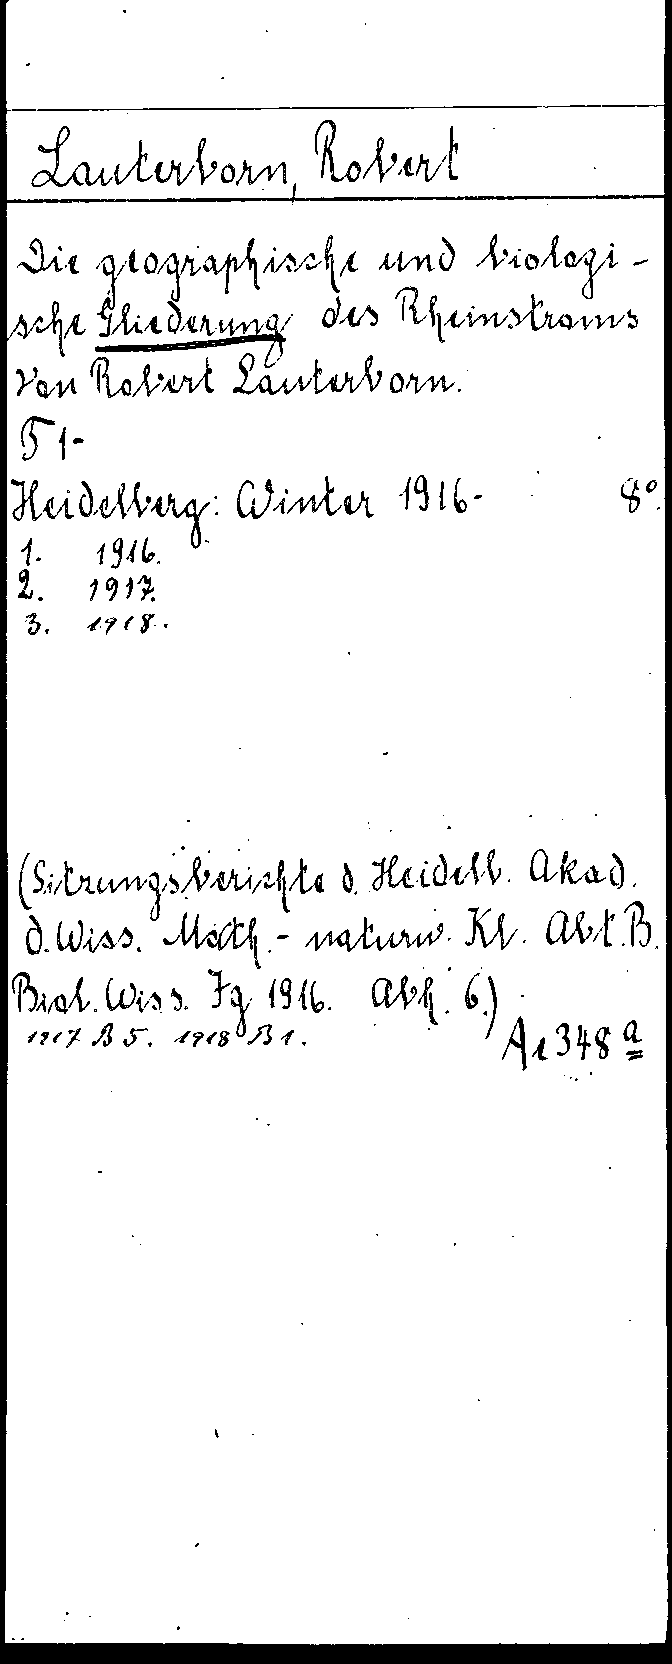 Lauterborn, Robert
Die geographische und biologi-
sche Gliederung des Rheinstroms
von Robert Lauterborn.
T 1-
Heidelberg: Winter 1916- 8°.
1. 1916.
2. 1917.
3. 1918.
(Sitzungsberichte d. Heidelb. Akad.
d. Wiss. Math.-naturw. Kl. Abt. B.
Biol. Wiss. Jg 1916. Abh. 6.)
1917 B 5. 1918 B 1.
Ae 348 a